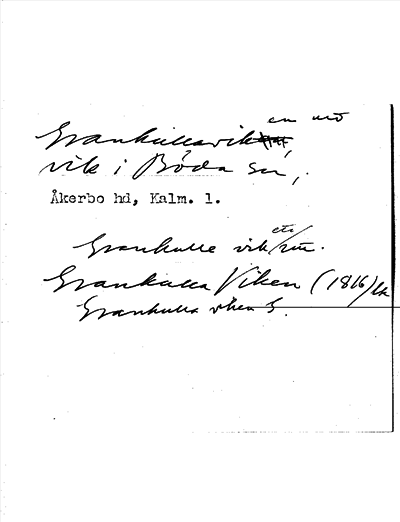 en
Grankullavik
vik i Böda sn,
Åkerbo hd, Kalm. l.
Grankulle vik
Grankulla Viken (1816)
Grankulla viken